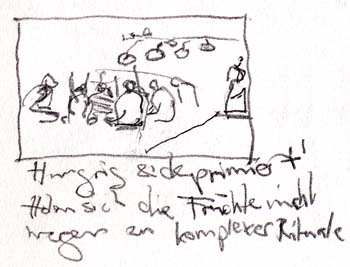 Hungrig deprimiert
Holen sich die Früchte nicht
wegen zu komplexer Rituale